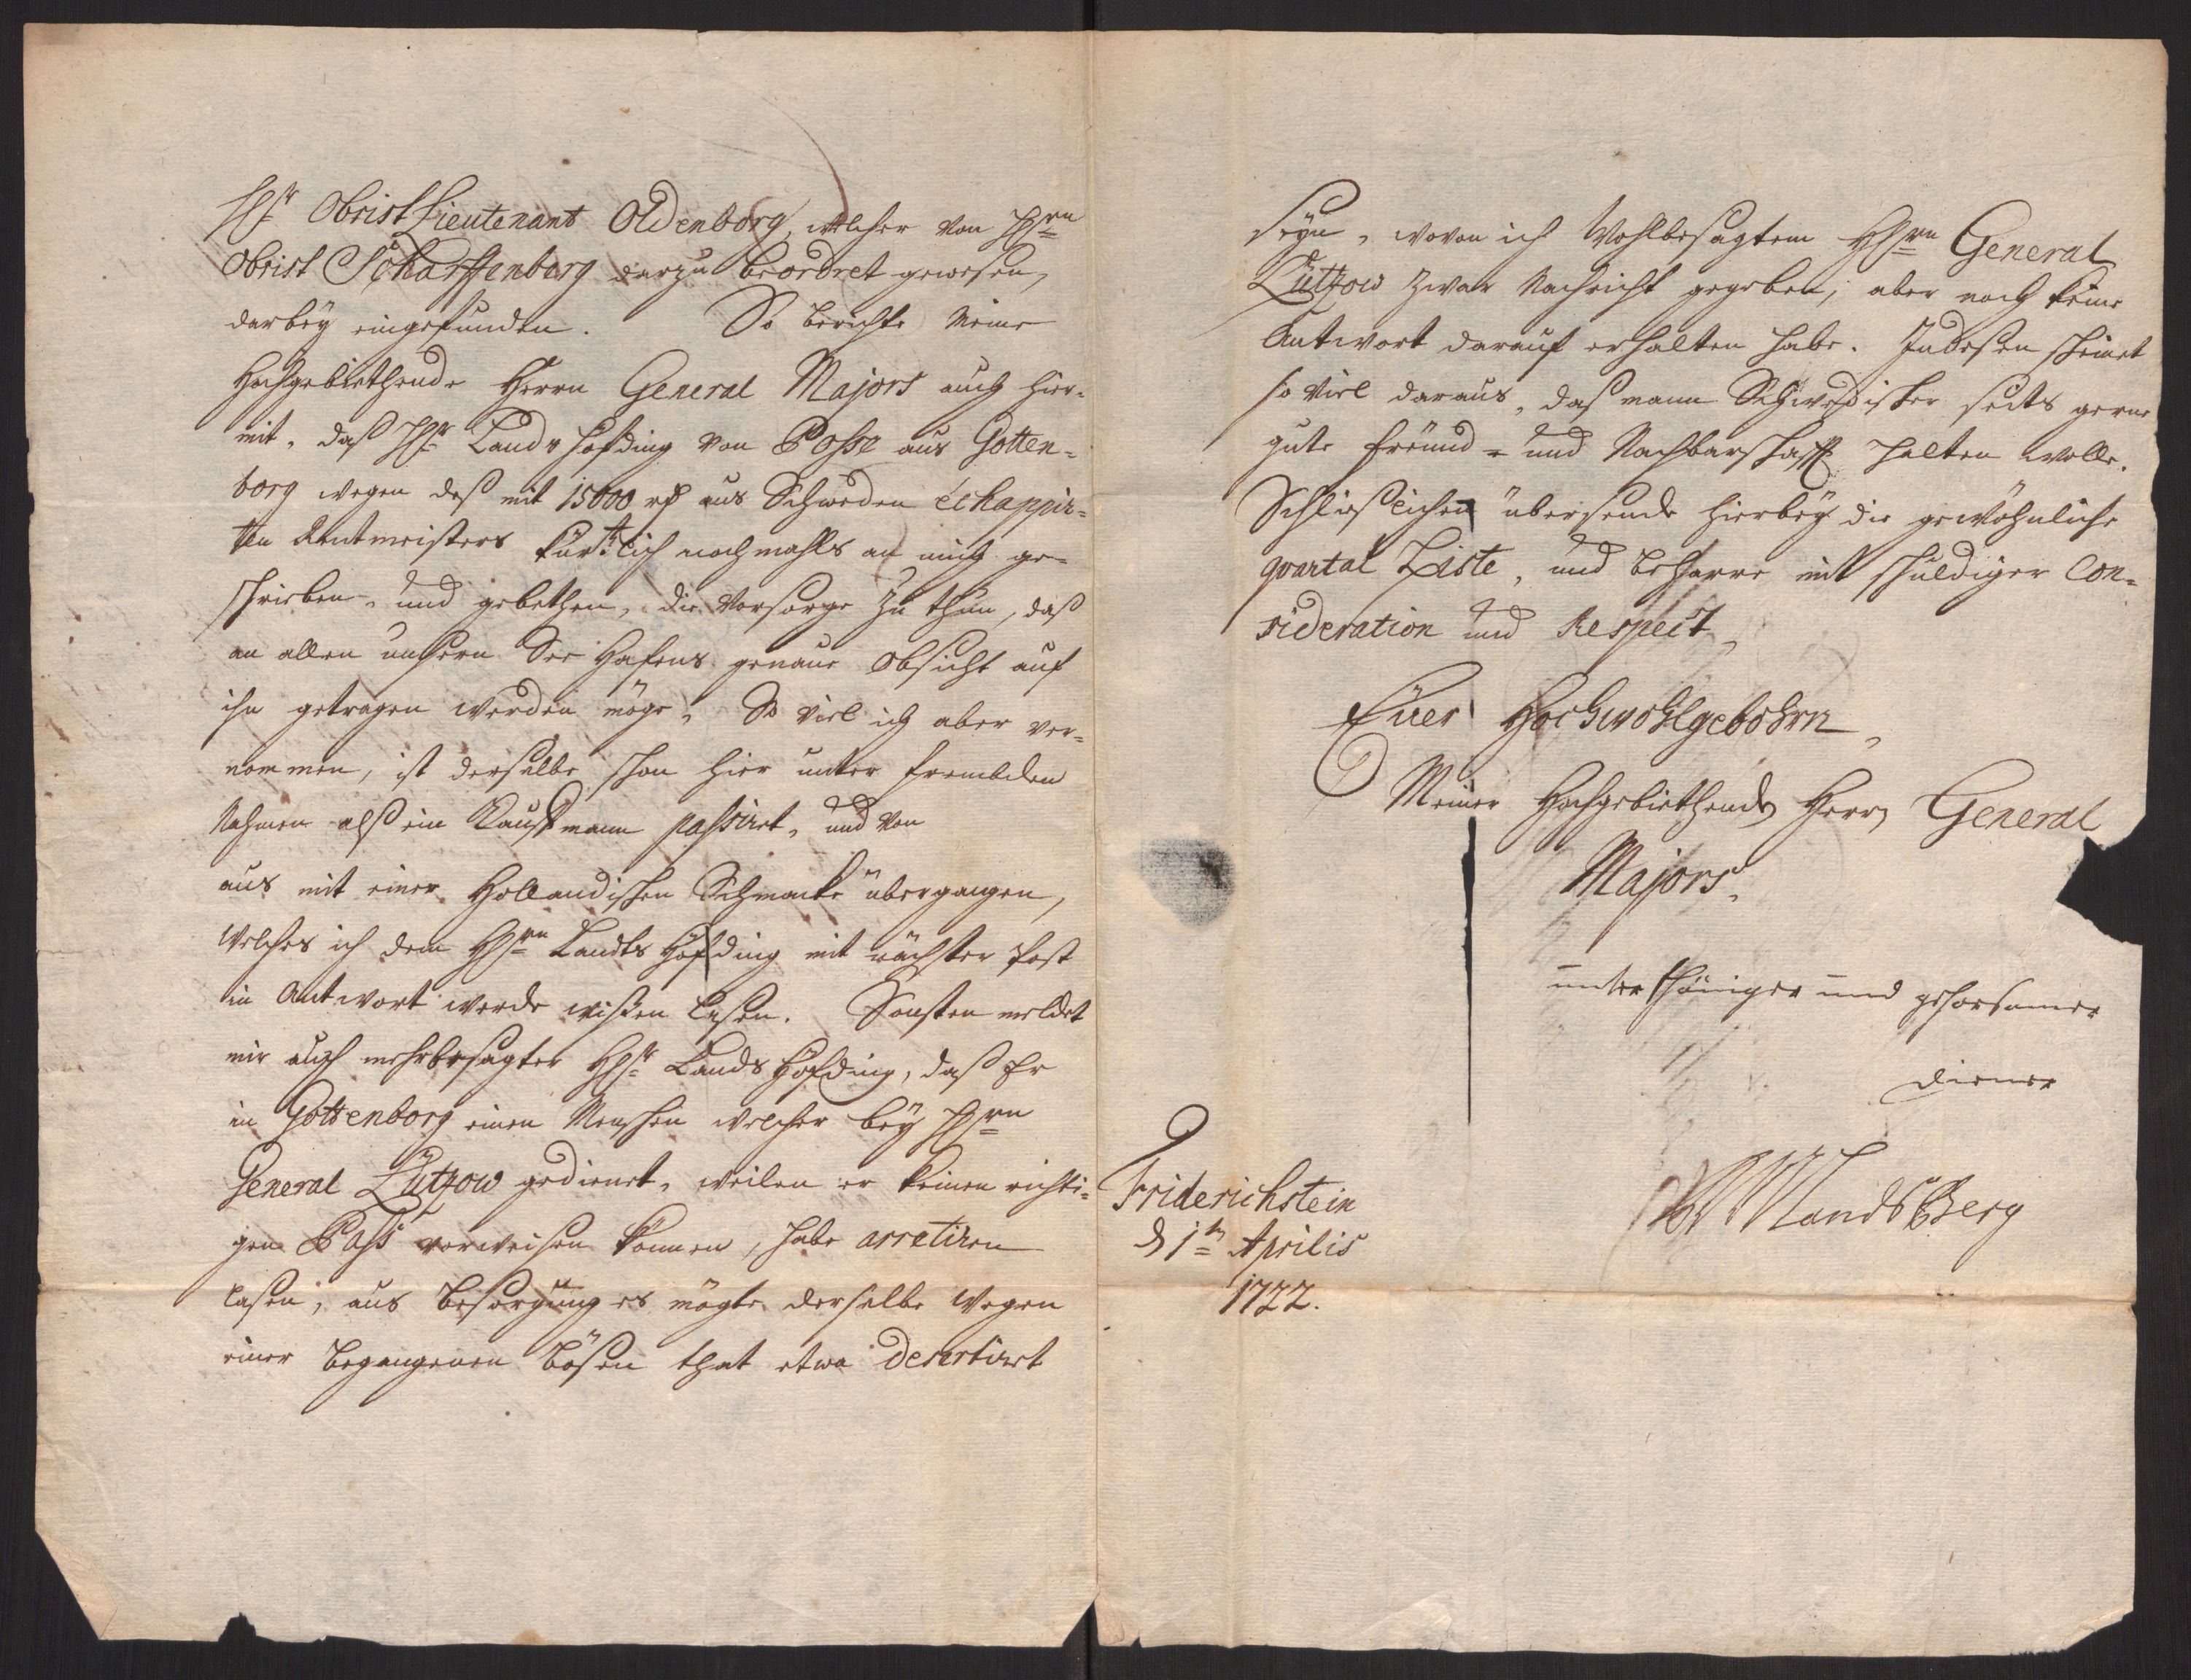 Hr. Obrist Lieutenant Oldenborg, welcher von Hrn
Obrist Scharffenberg darzu beordret gewesen,
darbeÿ eingefunden. So berichte Meine
Hochgebiethende Herrn General Majors auch hier-
mit, daß Hr. Lands Höfding von Posse aus Gotten-
borg wegen deß mit 15000 rß aus Schweden échappir-
ten Rentmeisters kürtzlich nochmahls an mich ge-
schrieben, und gebethen, die Vorsorge zu thun, daß
an allen unsern See Hafens genaue Obsicht auf
ihn getragen werden möge, So viel ich aber ver-
nommen, ist derselbe schon hier unter frembden
Nahmen alß ein Kauffmann passiret, und von
aus mit einer Hollandischen Schmacke übergangen,
Welches ich dem Hrn Landts Höfding mit nächster Post
in Antwort werde wißen laßen. Sonsten meldet
mir auch mehrbesagter Hr. Lands Höfding, daß Er
in Gottenborg einen Menschen welcher beÿ Hrn
General Lützow gedienet, weilen er keinen richti-
gen Pass vorweisen können, habe arretiren
laßen, aus besorgung es mögte derselbe wegen
einer begangenen bösen that etwa desertiret
seÿn, wovon ich Wohlbesagtem Hrn General
Lützow zwar Nachricht gegeben, aber noch keine
Antwort darauf erhalten habe. Indeßen scheinet
so viel daraus, daß mann Schwedischer seits gerne
gute freund- und Nachbarschafft halten wolle.
Schließlichen übersende hierbeÿ die gewöhnliche
quartal Liste, und beharre mit schuldiger Con-
sideration und Respect,
Euer Hochwohlgebohrn,
Meiner Hochgebiethende Herrn General
Majors,
unterthäniger und gehorsamer
diener
Landsberg
Friderichstein
d 1ten Aprilis
1722.